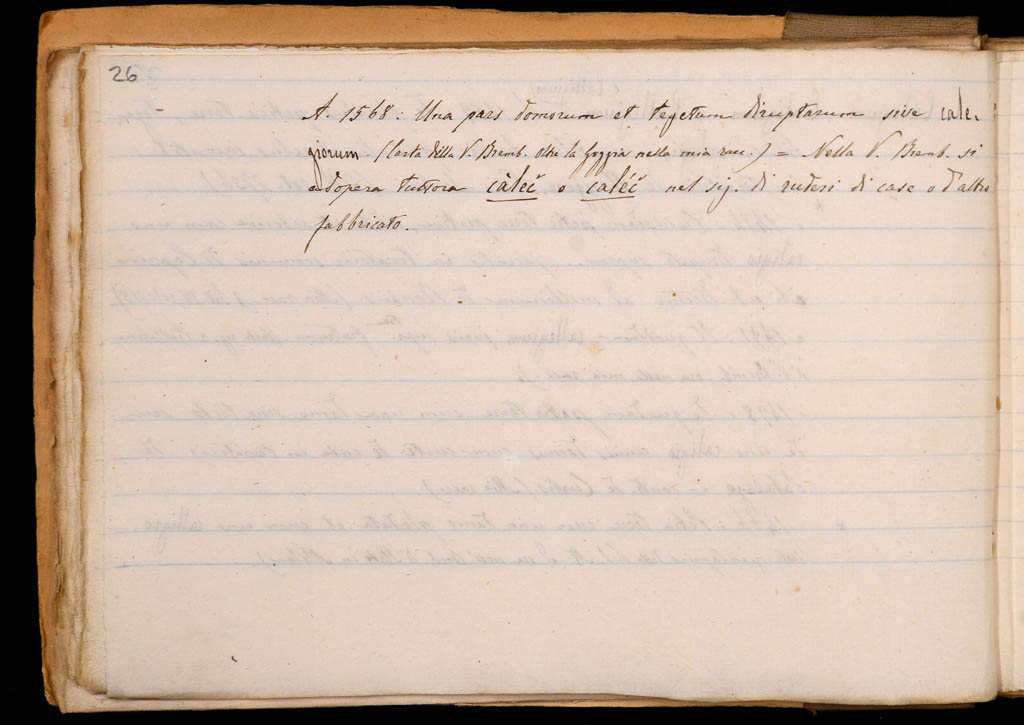 26
A. 1568: Una pars domorum et tegetum diruptarum sive cale-
giorum. (Carta della V. Bremb. oltre la Goggia nella mia racc.) = Nella V. Bremb. si
adopera tuttora càleč o caléč nel sig. di ruderi di case o d'altro
fabbricato.